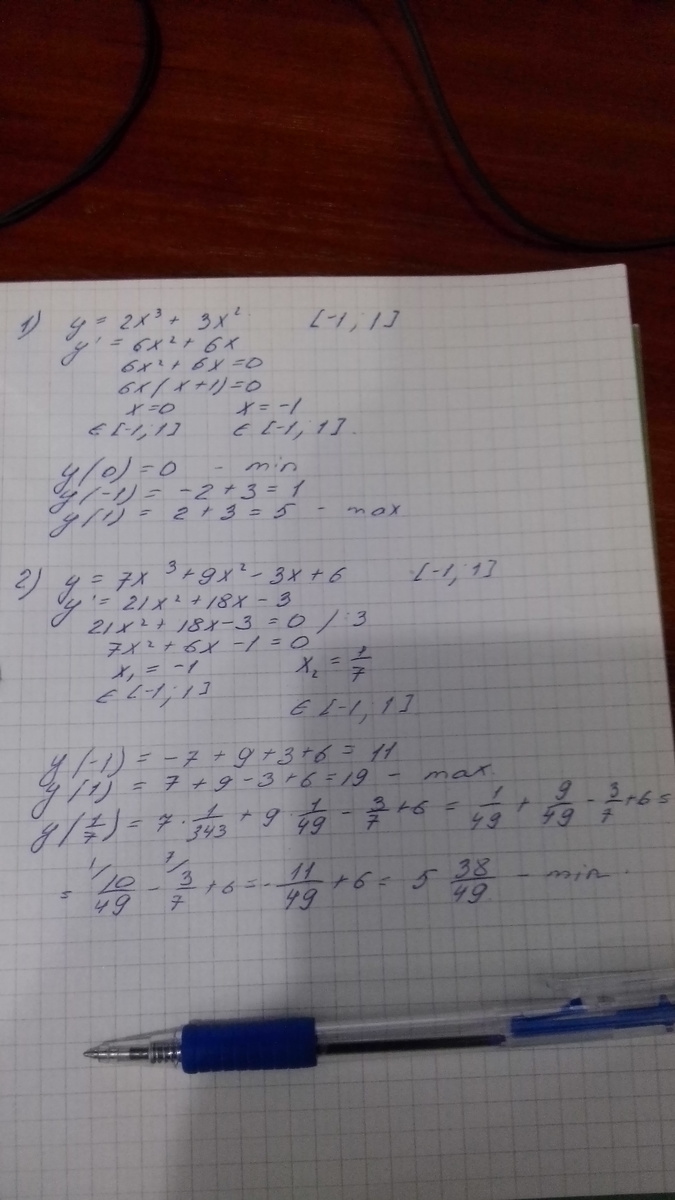 1) y = 2x³ + 3x² [-1; 1]
y' = 6x² + 6x
6x² + 6x = 0
6x(x+1) = 0
x=0 x=-1
∈ [-1; 1] ∈ [-1; 1].
y(0) = 0 - min
y(-1) = -2 + 3 = 1
y(1) = 2 + 3 = 5 - max
2) y = 7x³ + 9x² - 3x + 6 [-1; 1]
y' = 21x² + 18x - 3
21x² + 18x - 3 = 0 / :3
7x² + 6x - 1 = 0
x₁ = -1 x₂ = 1/7
∈ [-1; 1] ∈ [-1; 1]
y(-1) = -7 + 9 + 3 + 6 = 11
y(1) = 7 + 9 - 3 + 6 = 19 - max.
y(1/7) = 7 · 1/343 + 9 · 1/49 - 3/7 + 6 = 1/49 + 9/49 - 3/7 + 6 =
= ¹/ 10/49 - ⁷/ 3/7 + 6 = - 11/49 + 6 = 5 38/49 - min.